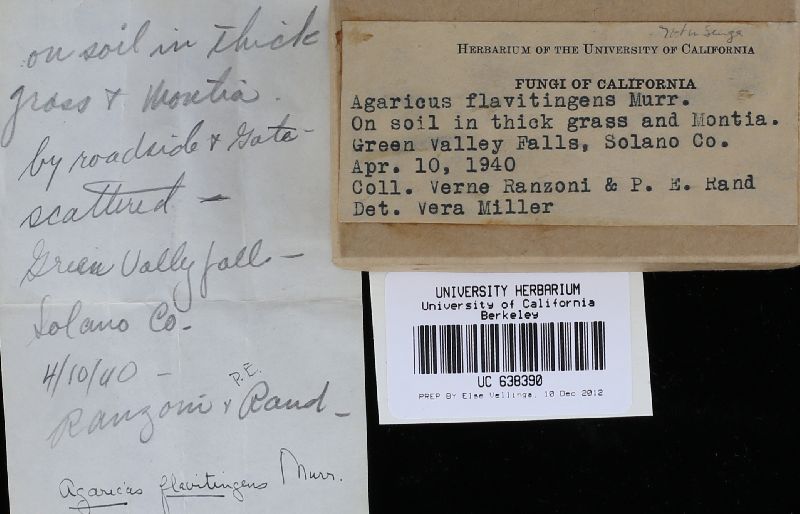 on soil in thick
grass & Montia.
by roadside & Gate -
scattered -
Green Vally falls -
Solano Co.
4/10/40 -
P.E.
Ranzoni & Rand -
Agaricus flavitingens Murr.
HERBARIUM OF THE UNIVERSITY OF CALIFORNIA
FUNGI OF CALIFORNIA
Agaricus flavitingens Murr.
On soil in thick grass and Montia.
Green Valley Falls, Solano Co.
Apr. 10, 1940
Coll. Verne Ranzoni & P. E. Rand
Det. Vera Miller
UNIVERSITY HERBARIUM
University of California
Berkeley
UC 638390
PREP BY Else Vellinga, 10 Dec 2012